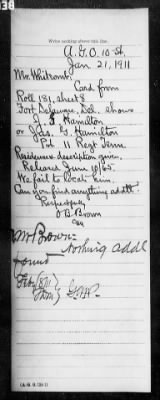 Write nothing above this line.
A.G.O. 10 St,
Jan. 21, 1911
Mr. Whitcomb:
Card from
Roll 181, sheet 8
Fort Delaware, Del. shows
J. G. Hamilton
or Jas. G. Hamilton
Pvt 11 Regt Tenn
Residence & description given.
Released June 10/65.
We fail to locate him.
Can you find anything addtl
Respectfully
J B Brown
Mr Brown:
Nothing addl
found